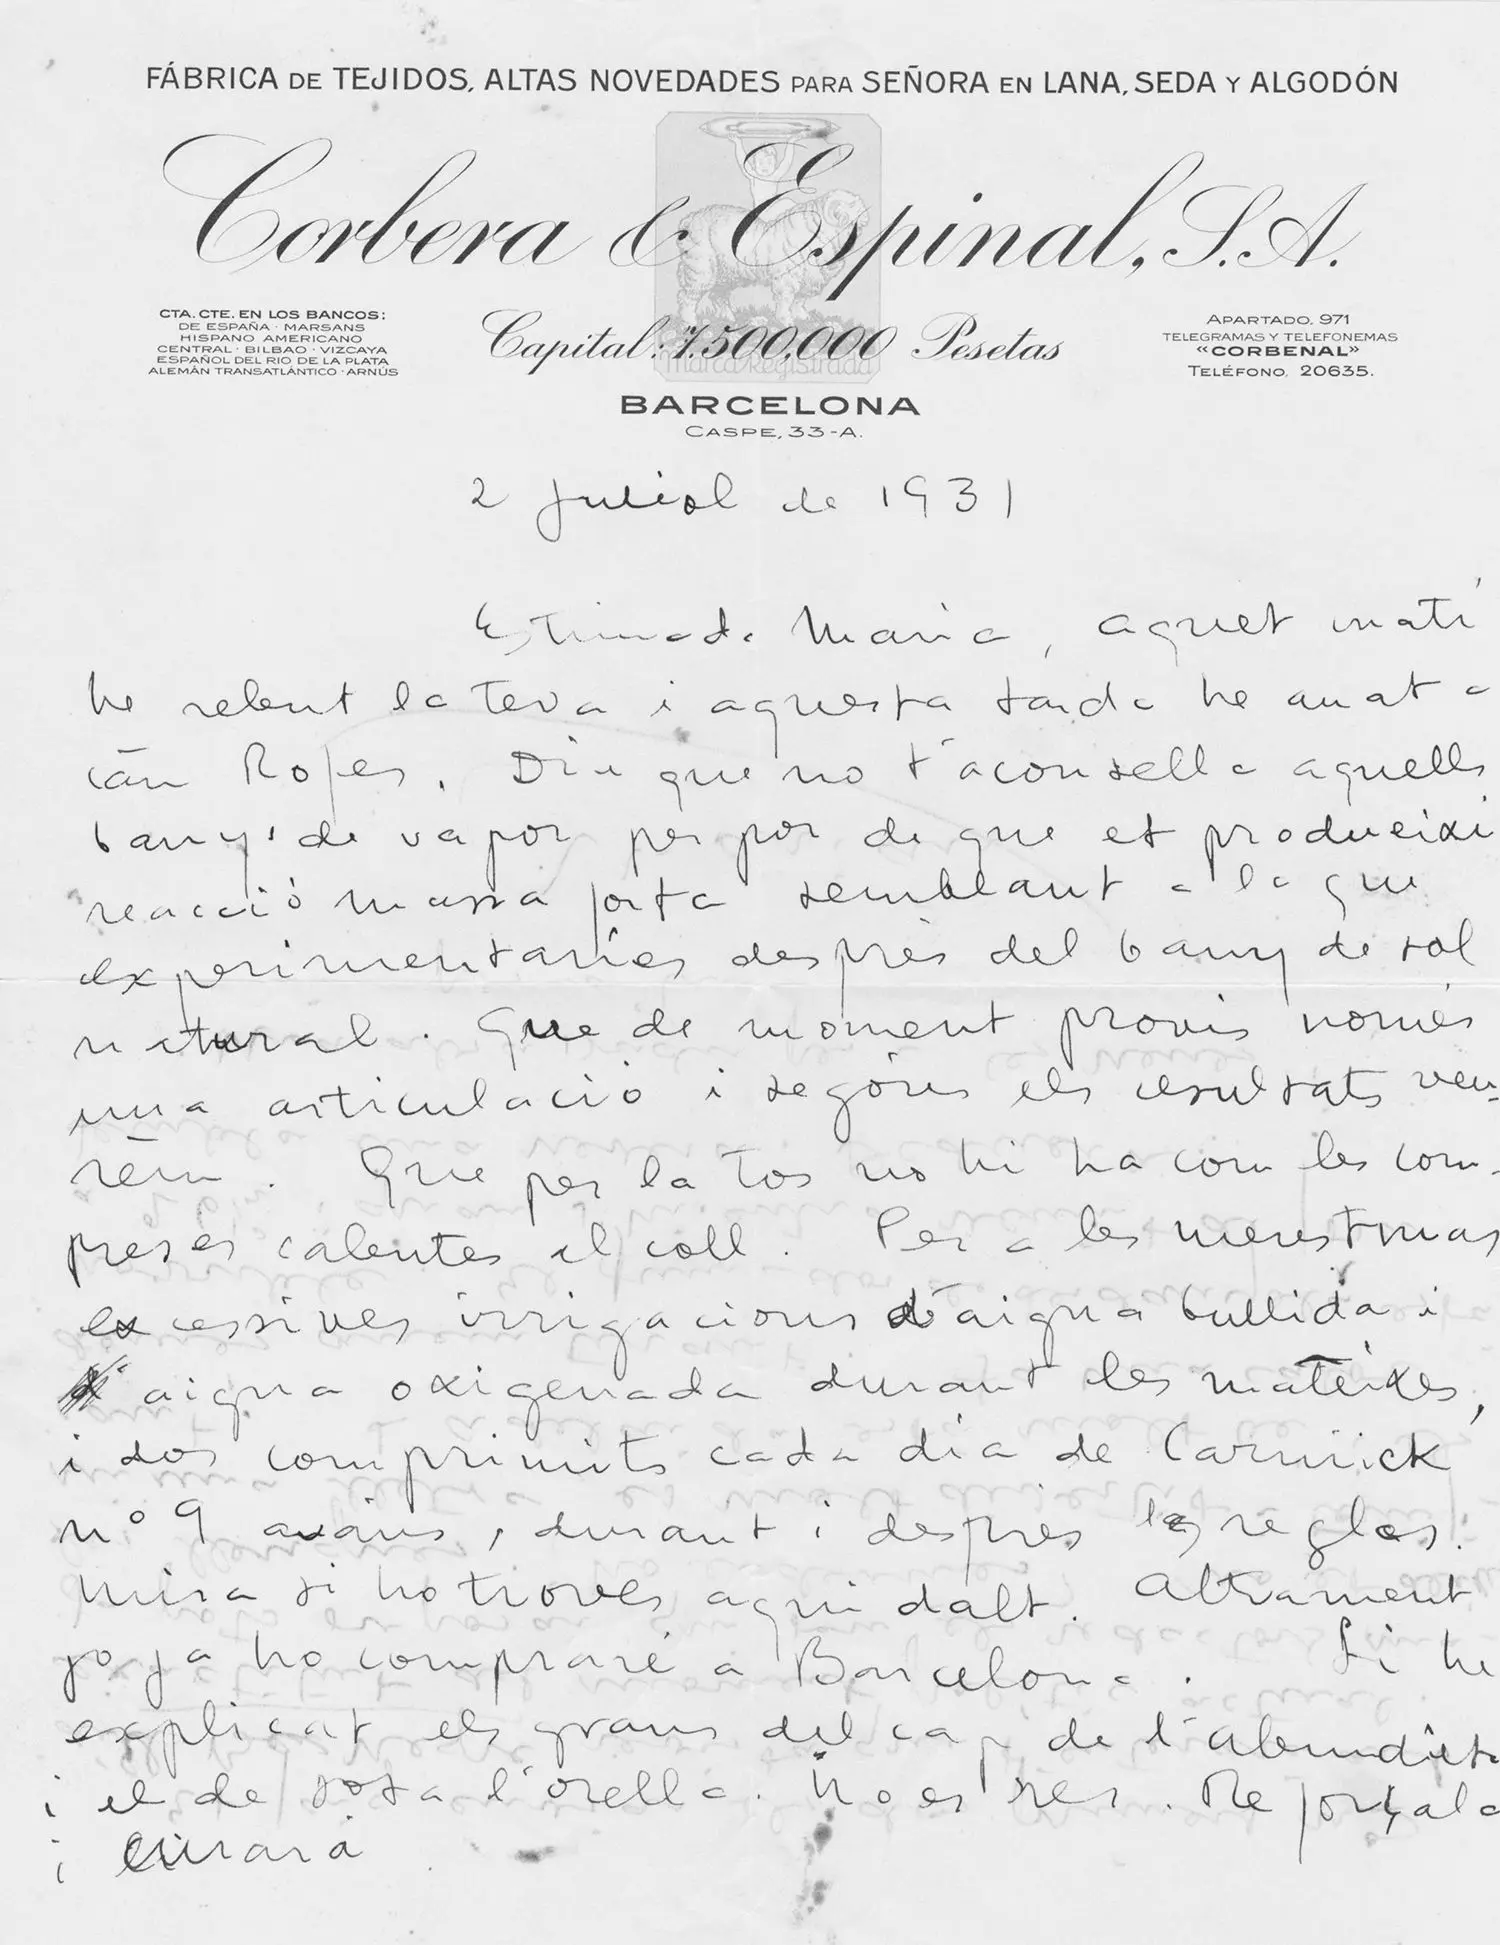 FÁBRICA DE TEJIDOS, ALTAS NOVEDADES PARA SEÑORA EN LANA, SEDA Y ALGODÓN
Corbera & Espinal, S.A.
CTA. CTE. EN LOS BANCOS:
DE ESPAÑA · MARSANS
HISPANO AMERICANO
CENTRAL · BILBAO · VIZCAYA
ESPAÑOL DEL RIO DE LA PLATA
ALEMÁN TRANSATLÁNTICO · ARNÚS
Capital: 7.500,000 Pesetas
Marca Registrada
APARTADO, 971
TELEGRAMAS Y TELEFONEMAS
«CORBENAL»
TELÉFONO, 20635.
BARCELONA
CASPE, 33-A.
2 juliol de 1931
Estimada Maria, aquet matí
he rebut la teva i aquesta tarda he anat a
càn . Diu que no t'aconsella aquells
banys de vapor per por de que et produeixi
reacció massa forta semblant a la que
experimentaries desprès del bany de sol
natural. Que de moment provis només
una articulació i segóns els resultats veu-
rèm. Que per la tos no hi ha com les com-
preses calentes al coll. Per a les menstruas
excessives irrigacions d'aigua bullida i
aigua oxigenada durant les mateixes,
i dos comprimits cada día de Carnrick
nº 9 avans, durant i desprès les regles.
Mira si ho troves aqui dalt. Altrament
jo ja ho compraré a Barcelona. Li he
explicat els grans del cap de l'
i el de sota l'orella. No es res.
i curará